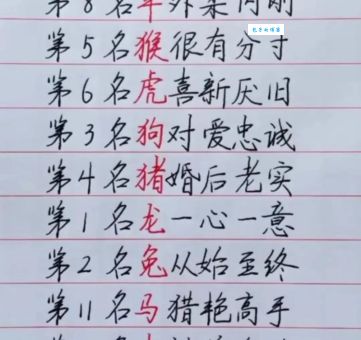 第8名羊外柔内刚
第5名猴很有分寸
第6名虎喜新厌旧
第3名狗对爱忠诚
第4名猪婚后老实
第1名龙一心一意
第2名兔从始至终
第11名马猎艳高手